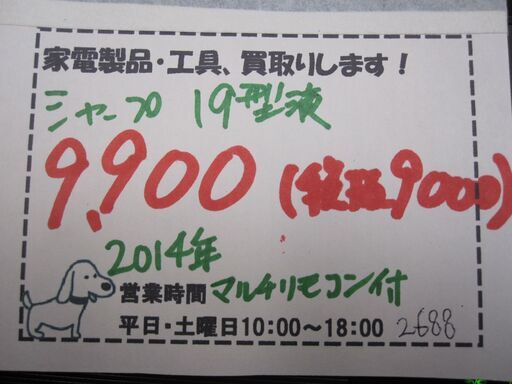 家電製品・工具、買取りします！
シャープ 19型液
9,900 (税抜9000)
2014年
営業時間 マルチリモコン付
平日・土曜日10:00～18:00 2688